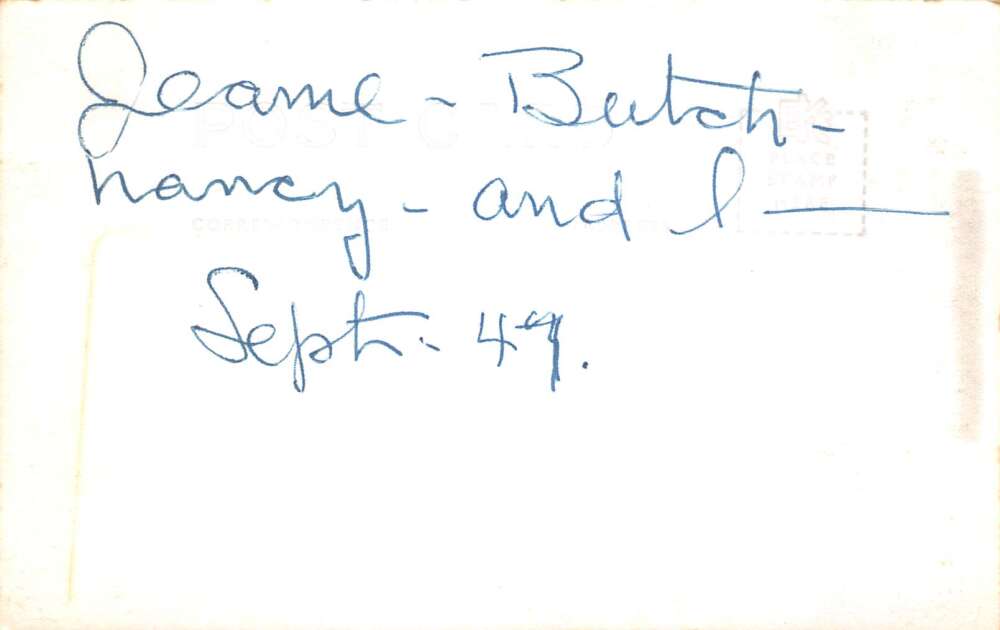 Jeanne - Butch -
nancy - and I —
Sept. - 49.
POST CARD
PLACE
STAMP
HERE
CORRESPONDENCE